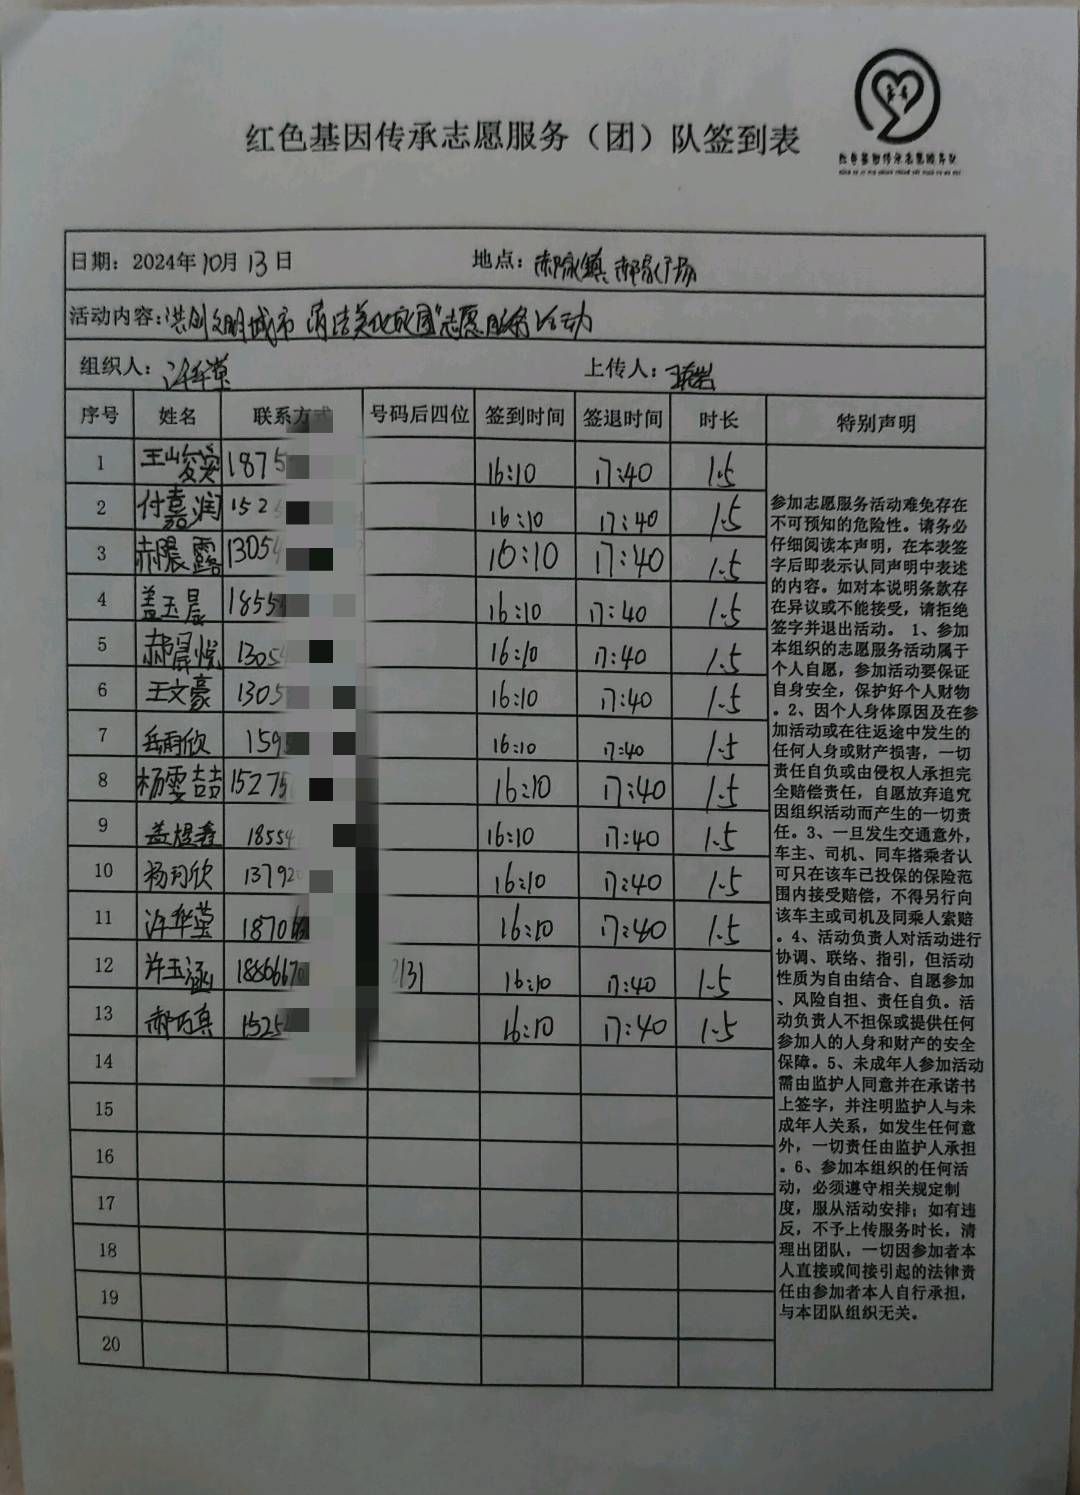 红色基因传承志愿服务（团）队签到表
红色基因传承志愿服务队
日期：2024年10月13日 地点：郝家镇郝家广场
活动内容:“洪创文明城市 清洁美化家园”志愿服务活动
组织人：许华莹 上传人：
序号 姓名 联系方式 号码后四位 签到时间 签退时间 时长 特别声明
1 王山 1875 16:10 17:40 1.5
2 付嘉润 152 16:10 17:40 1.5
3 郝晨露 13054 16:10 17:40 1.5
4 盖玉晨 1855 16:10 17:40 1.5
5 郝晨悦 1305 16:10 17:40 1.5
6 王文豪 1305 16:10 17:40 1.5
7 岳雨欣 159 16:10 17:40 1.5
8 杨雯喆 15275 16:10 17:40 1.5
9 盖煜鑫 18554 16:10 17:40 1.5
10 杨珂欣 13792 16:10 17:40 1.5
11 许华莹 18706 16:10 17:40 1.5
12 许玉涵 18866670 2131 16:10 17:40 1.5
13 郝巧真 1525 16:10 17:40 1.5
14
15
16
17
18
19
20
参加志愿服务活动难免存在
不可预知的危险性。请务必
仔细阅读本声明，在本表签
字后即表示认同声明中表述
的内容。如对本说明条款存
在异议或不能接受，请拒绝
签字并退出活动。 1、参加
本组织的志愿服务活动属于
个人自愿，参加活动要保证
自身安全，保护好个人财物
。2、因个人身体原因及在参
加活动或在往返途中发生的
任何人身或财产损害，一切
责任自负或由侵权人承担完
全赔偿责任，自愿放弃追究
因组织活动而产生的一切责
任。3、一旦发生交通意外，
车主、司机、同车搭乘者认
可只在该车已投保的保险范
围内接受赔偿，不得另行向
该车主或司机及同乘人索赔
。4、活动负责人对活动进行
协调、联络、指引，但活动
性质为自由结合、自愿参加
、风险自担、责任自负。活
动负责人不担保或提供任何
参加人的人身和财产的安全
保障。5、未成年人参加活动
需由监护人同意并在承诺书
上签字，并注明监护人与未
成年人关系，如发生任何意
外，一切责任由监护人承担
。6、参加本组织的任何活
动，必须遵守相关规定制
度，服从活动安排；如有违
反，不予上传服务时长，清
理出团队，一切因参加者本
人直接或间接引起的法律责
任由参加者本人自行承担，
与本团队组织无关。